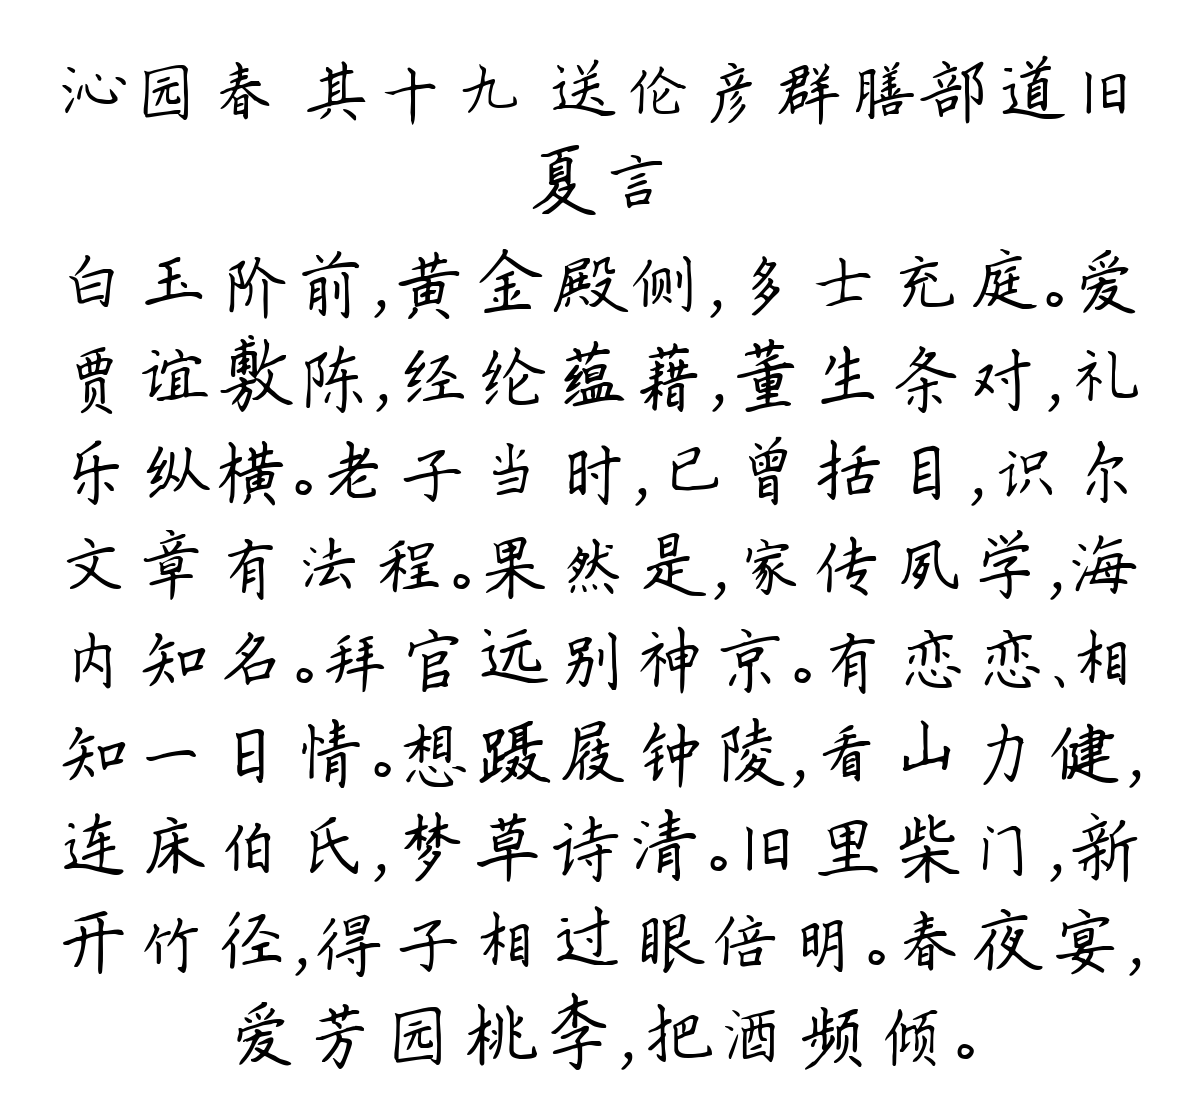 沁园春 其十九 送伦彦群膳部道旧
夏言
白玉阶前,黄金殿侧,多士充庭。爱
贾谊敷陈,经纶蕴藉,董生条对,礼
乐纵横。老子当时,已曾括目,识尔
文章有法程。果然是,家传夙学,海
内知名。拜官远别神京。有恋恋、相
知一日情。想蹑屐钟陵,看山力健,
连床伯氏,梦草诗清。旧里柴门,新
开竹径,得子相过眼倍明。春夜宴,
爱芳园桃李,把酒频倾。